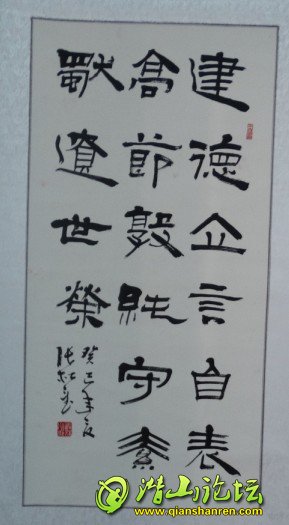 建德企言自表
髙節敦純守素
世榮
癸巳年夏
潜山论坛
www.qianshanren.com